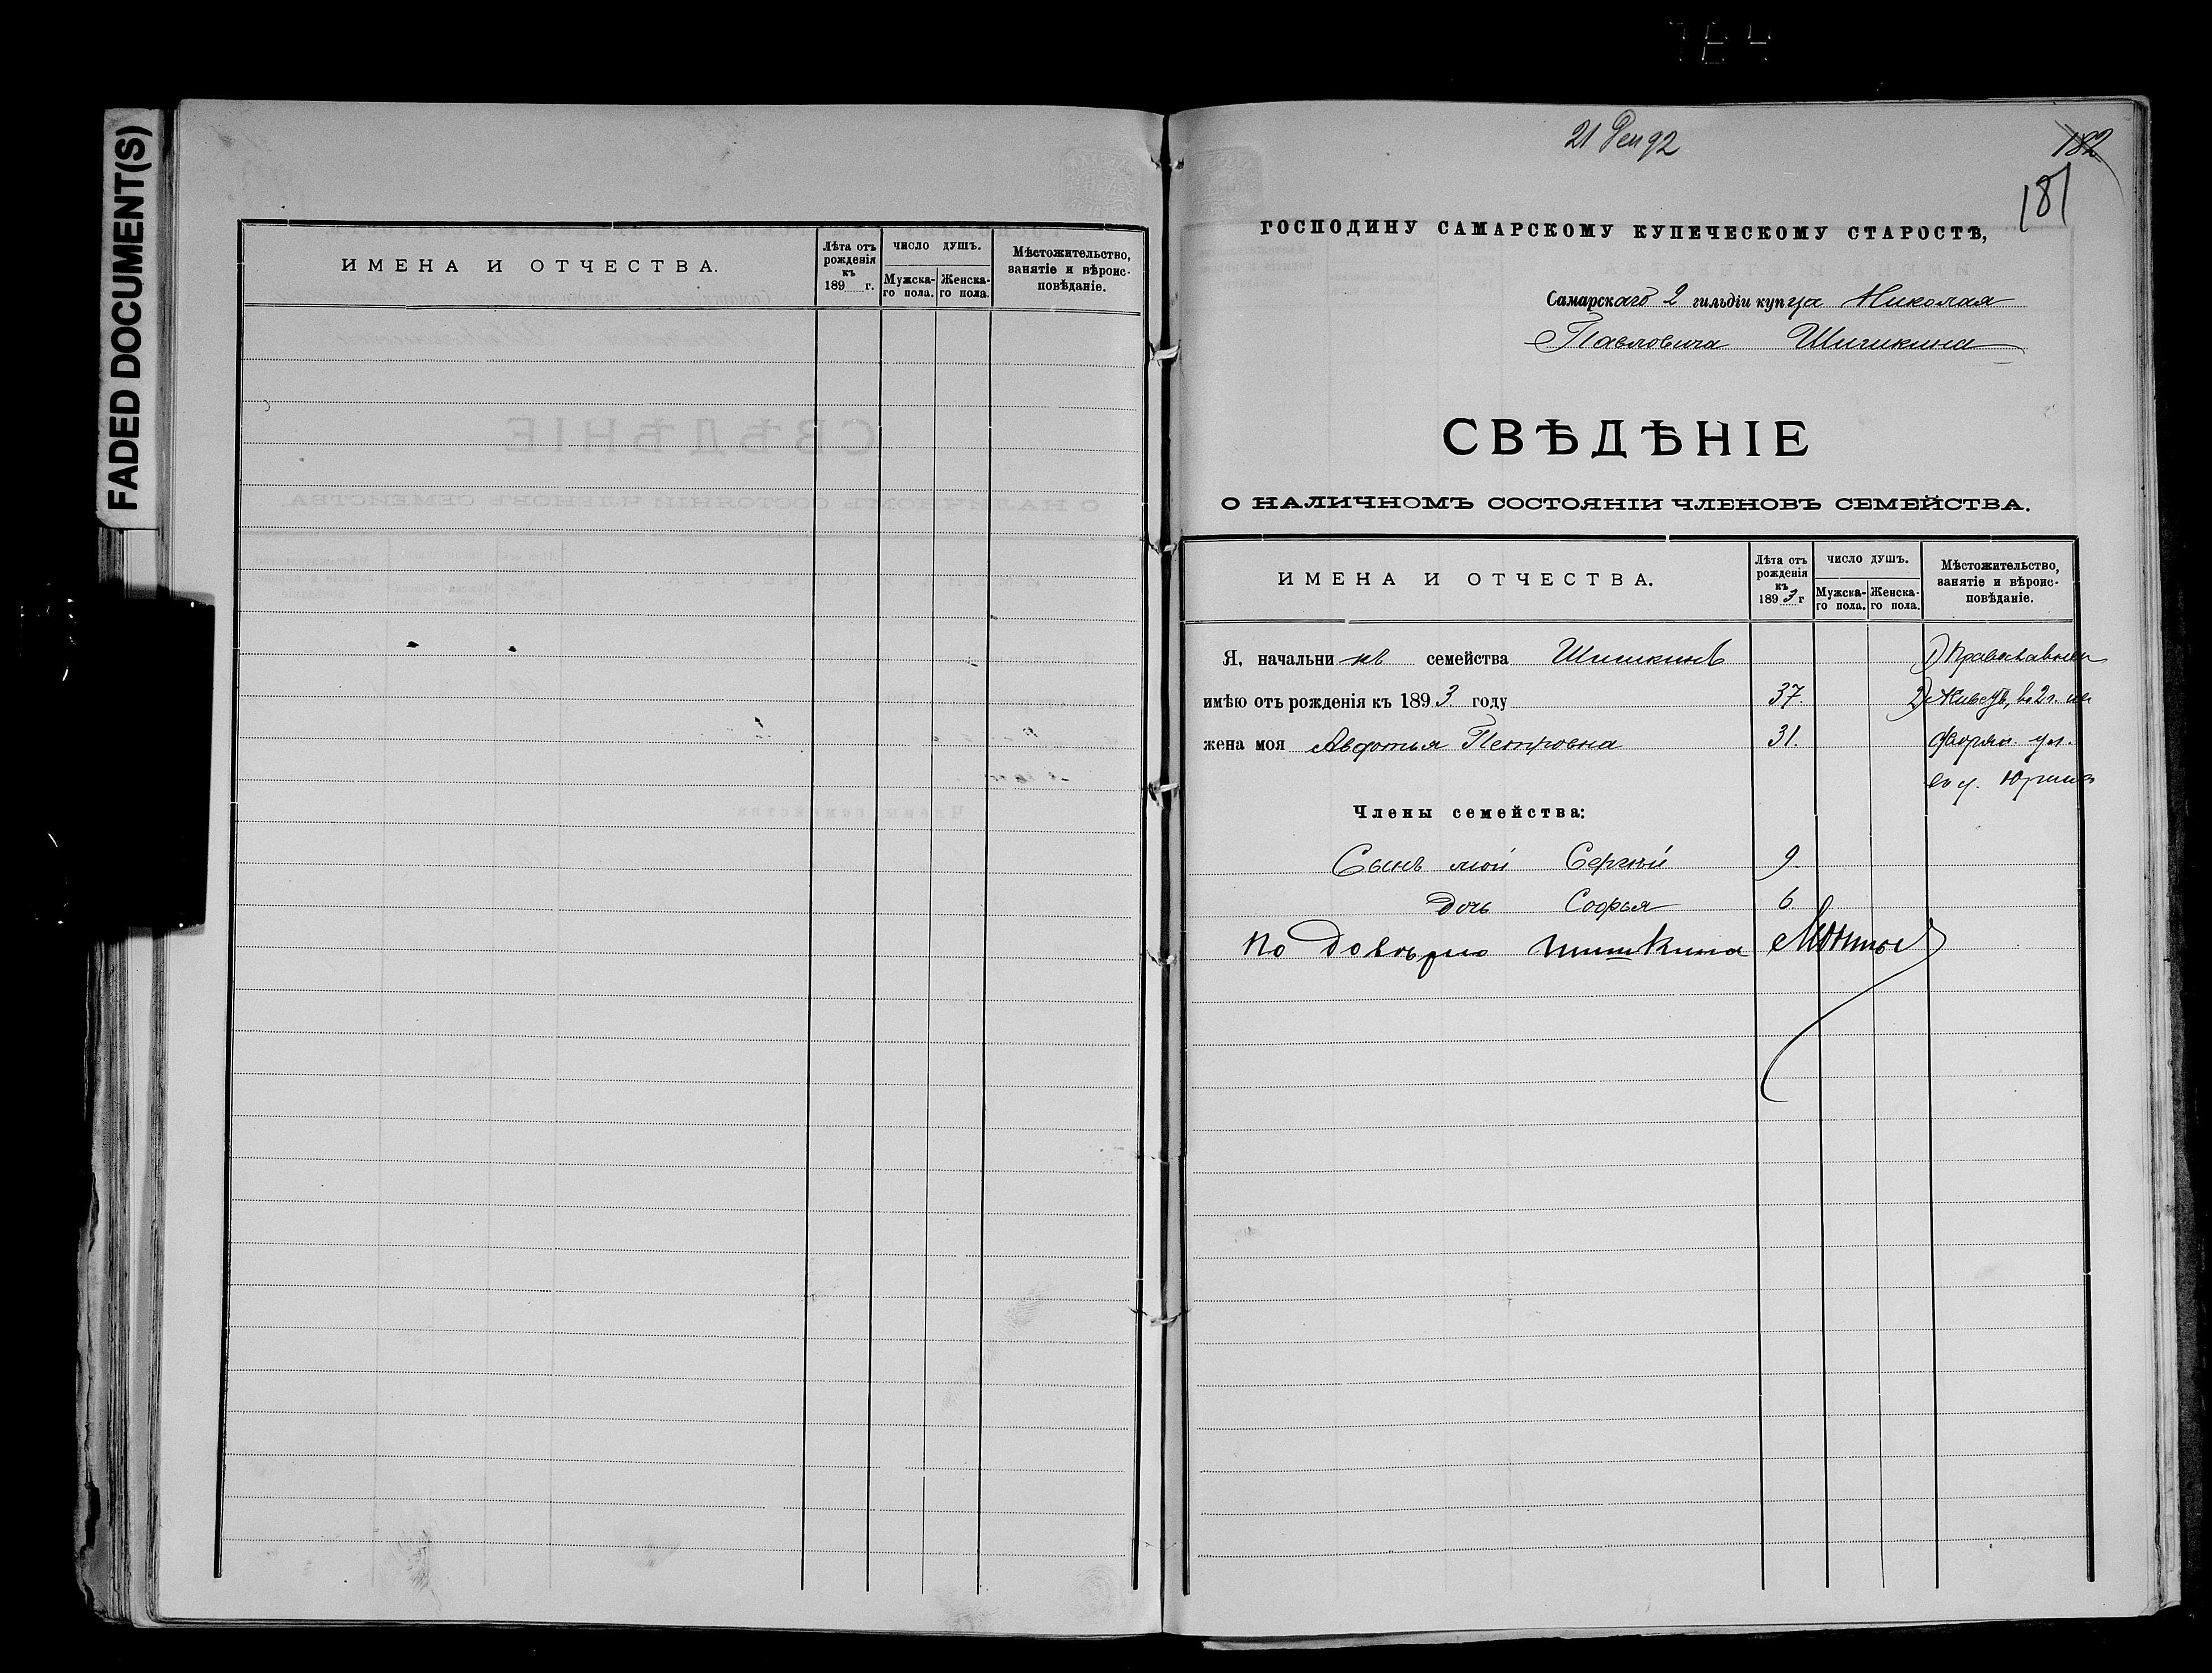 FADED DOCUMENT(S)
ИМЕНА И ОТЧЕСТВА.
Лѣта отъ рожденія къ 189 г.
ЧИСЛО ДУШЪ.
Мужска-го пола.
Женска-го пола.
Мѣстожительство, занятіе и вѣроис-повѣданіе.
21 Дек 92
182
181
ГОСПОДИНУ САМАРСКОМУ КУПЕЧЕСКОМУ СТАРОСТѢ,
Самарскаго 2 гильдіи купца Николая
Павловича Шишкина
СВѢДѢНІЕ
О НАЛИЧНОМЪ СОСТОЯНІИ ЧЛЕНОВЪ СЕМЕЙСТВА.
ИМЕНА И ОТЧЕСТВА.
Лѣта отъ рожденія къ 1893 г
ЧИСЛО ДУШЪ.
Мужска-го пола.
Женска-го пола.
Мѣстожительство, занятіе и вѣроис-повѣданіе.
Я, начальникъ семейства Шишкинъ 1)
имѣю отъ рожденія къ 1893 году 37. 2) Живетъ, во 2 г.
жена моя Авдотья Петровна 31. Дворян. ул.
Члены семейства:
Сынъ мой Сергѣй 9.
Дочь Софья 6.
по довѣрію Шишкина